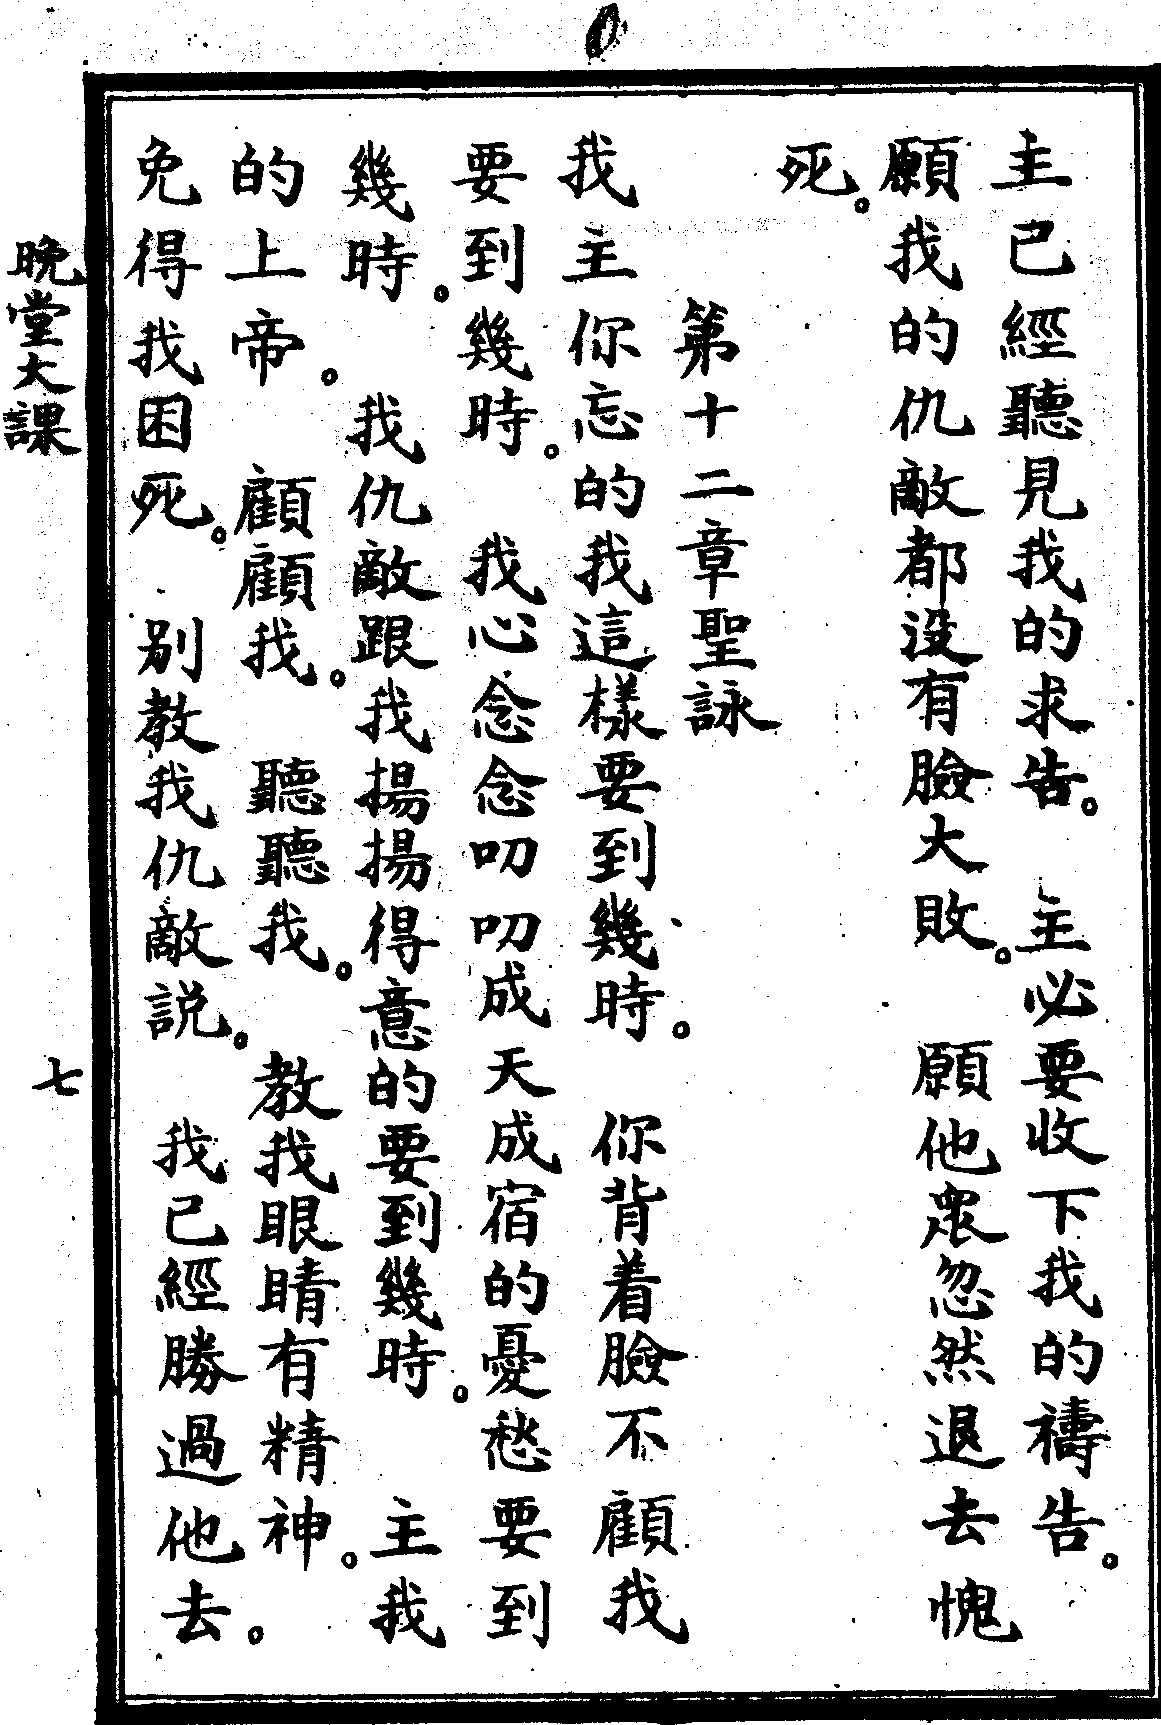 主已經聽見我的求告。 主必要收下我的禱告。
願我的仇敵都沒有臉大敗。 願他衆忽然退去愧
死。
第十二章聖詠
我主你忘的我這樣要到幾時。 你背着臉不顧我
要到幾時。 我心念念叨叨成天成宿的憂愁要到
幾時。 我仇敵跟我揚揚得意的要到幾時。 主我
的上帝。 顧顧我。 聽聽我。 教我眼睛有精神。
免得我困死。 别教我仇敵説。 我已經勝過他去。
晩堂大課
七